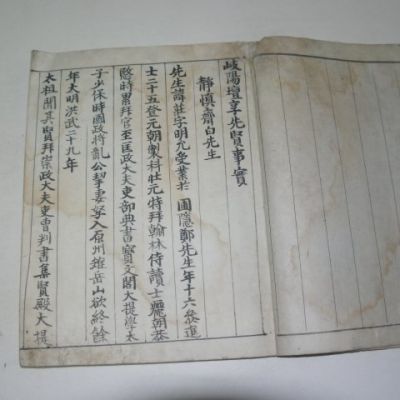 岐陽壇享先賢事實
靜慎齋白先生
先生諱莊字明允受業於 圃隱鄭先生年十六參進
士二十五登元朝製科壯元特拜翰林侍讀士麗朝恭
愍時累拜官至匡政大夫吏部典書寶文閣大提學太
子少保時國政將亂公挈妻孥入原州雉岳山欲終餘
年大明洪武二十九年
太祖聞其賢拜崇政大夫吏曹判書集賢殿大提